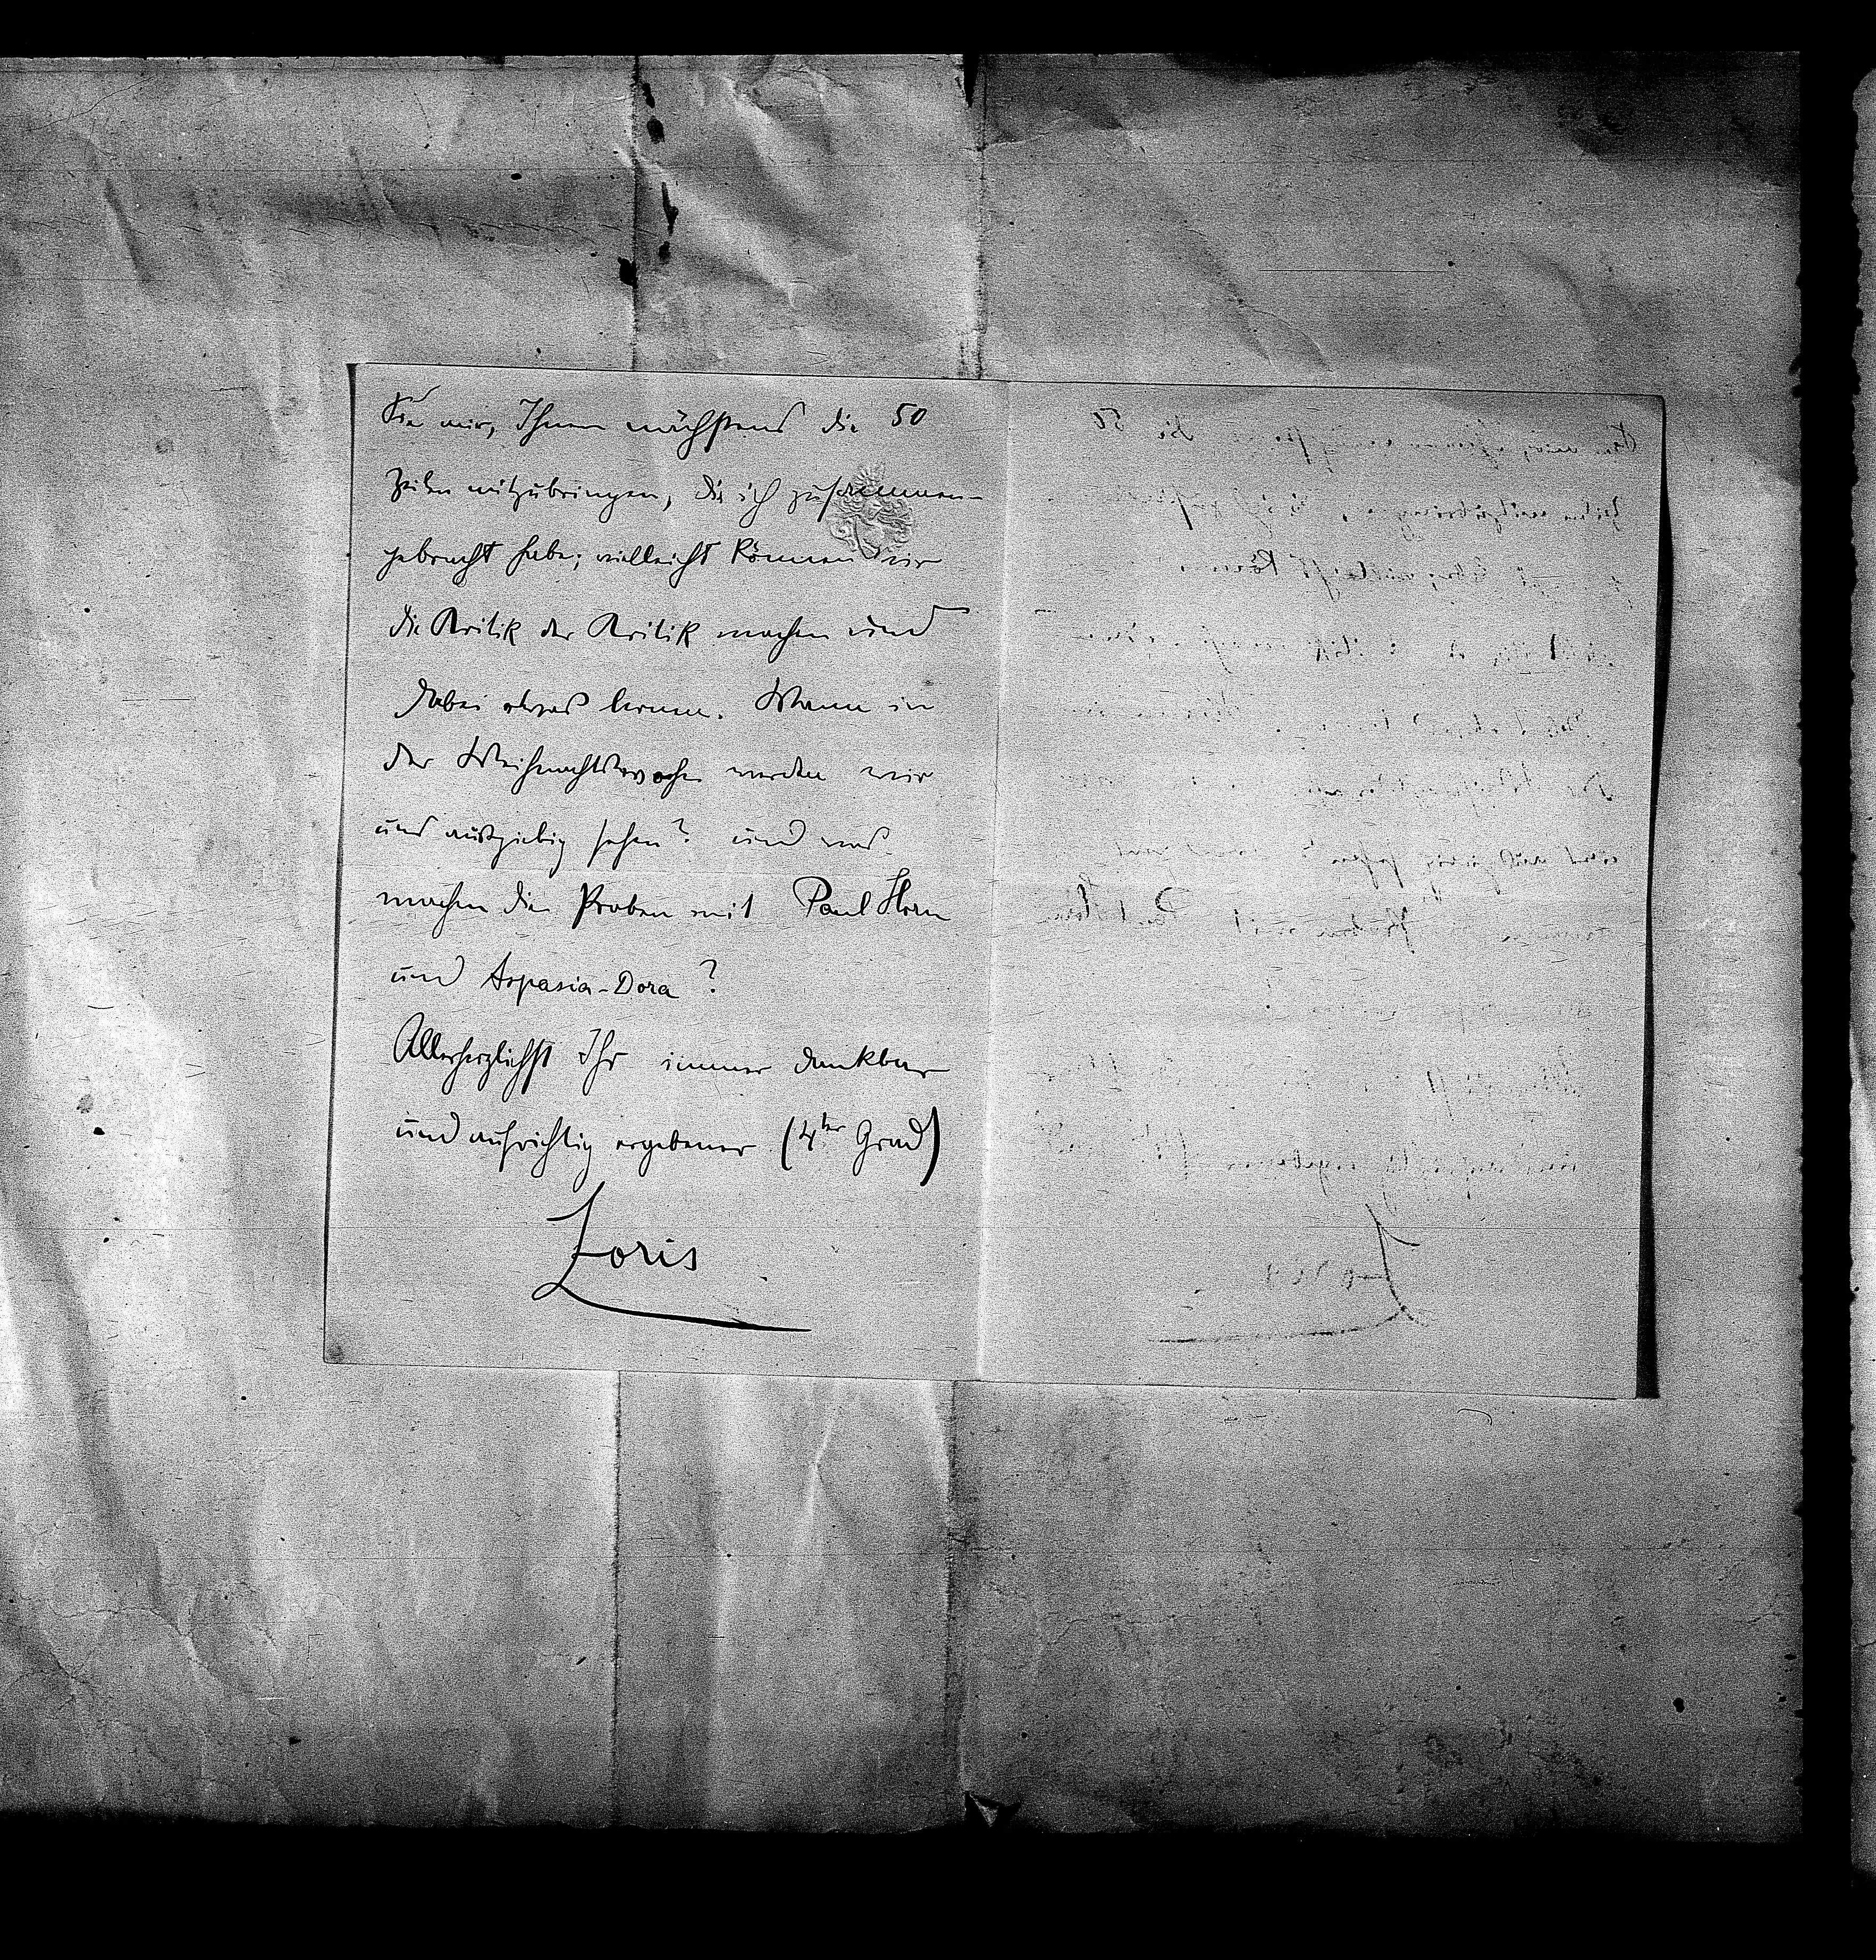 Sie mir, Ihnen nächstens die 50
Zeilen mitzubringen, die ich zusammen-
gebracht habe; vielleicht können wir
die Kritik der Kritik machen und
dabei etwas lernen. Wann in
der Weihnachtswoche werden wir
uns ausgiebig sehen? und was
machen die Proben mit Paul Horn
und Aspasia-Dora?
Allerherzlichst Ihr immer dankbar
und aufrichtig ergebener (4ter Grad)
Loris